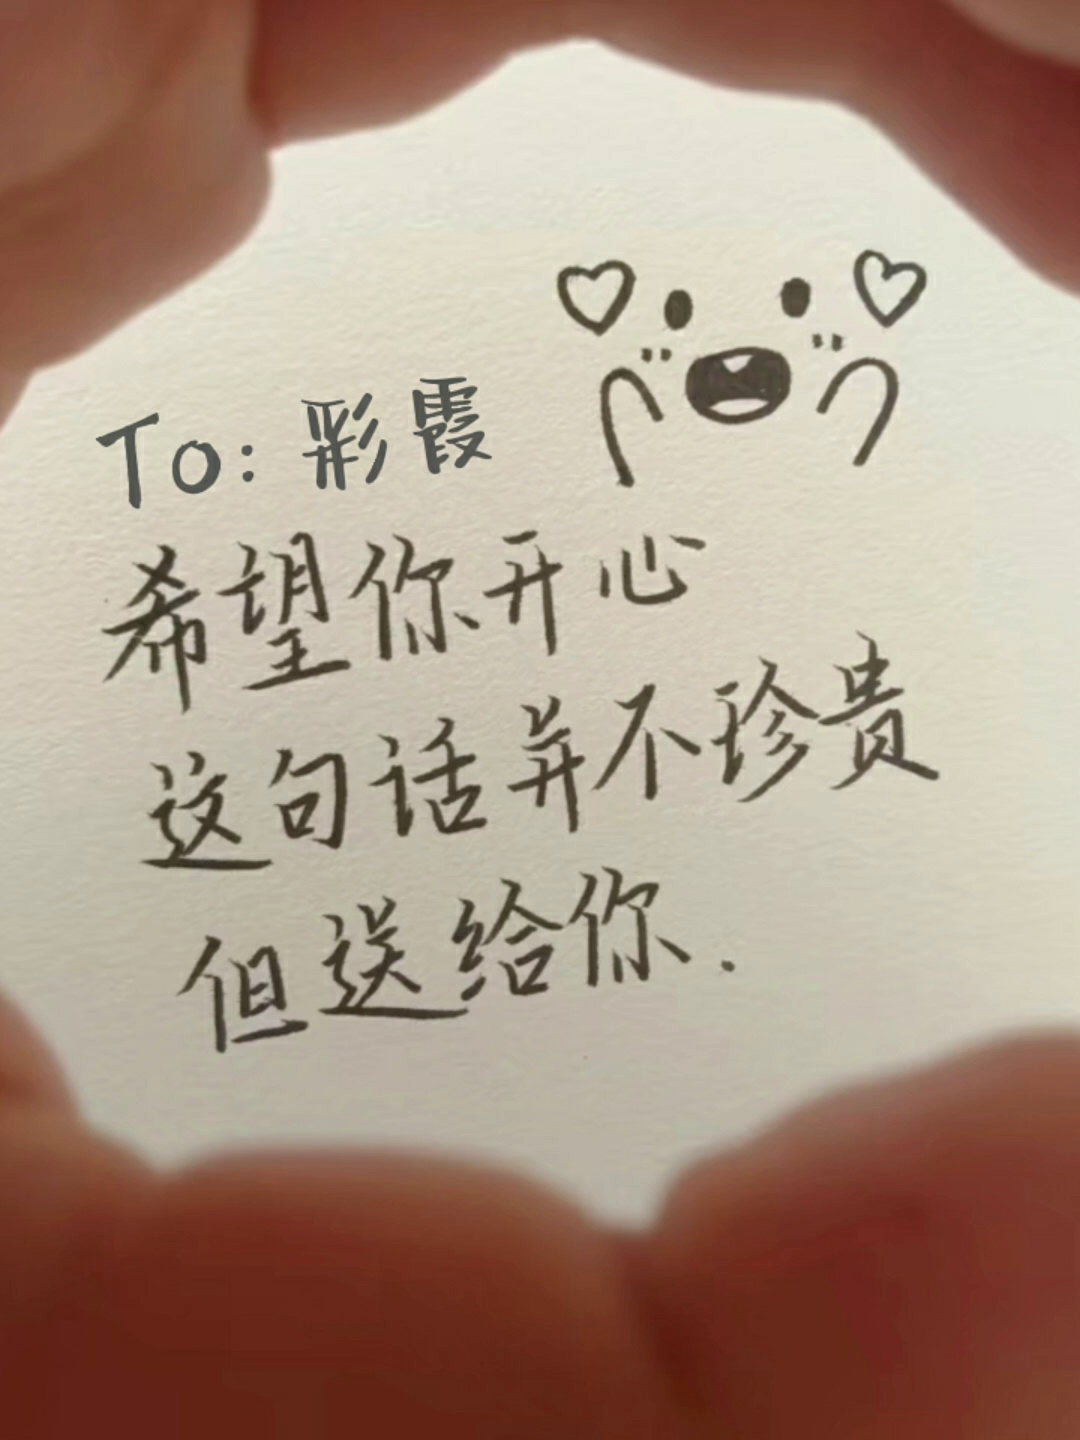 To: 彩霞
希望你开心
这句话并不珍贵
但送给你.